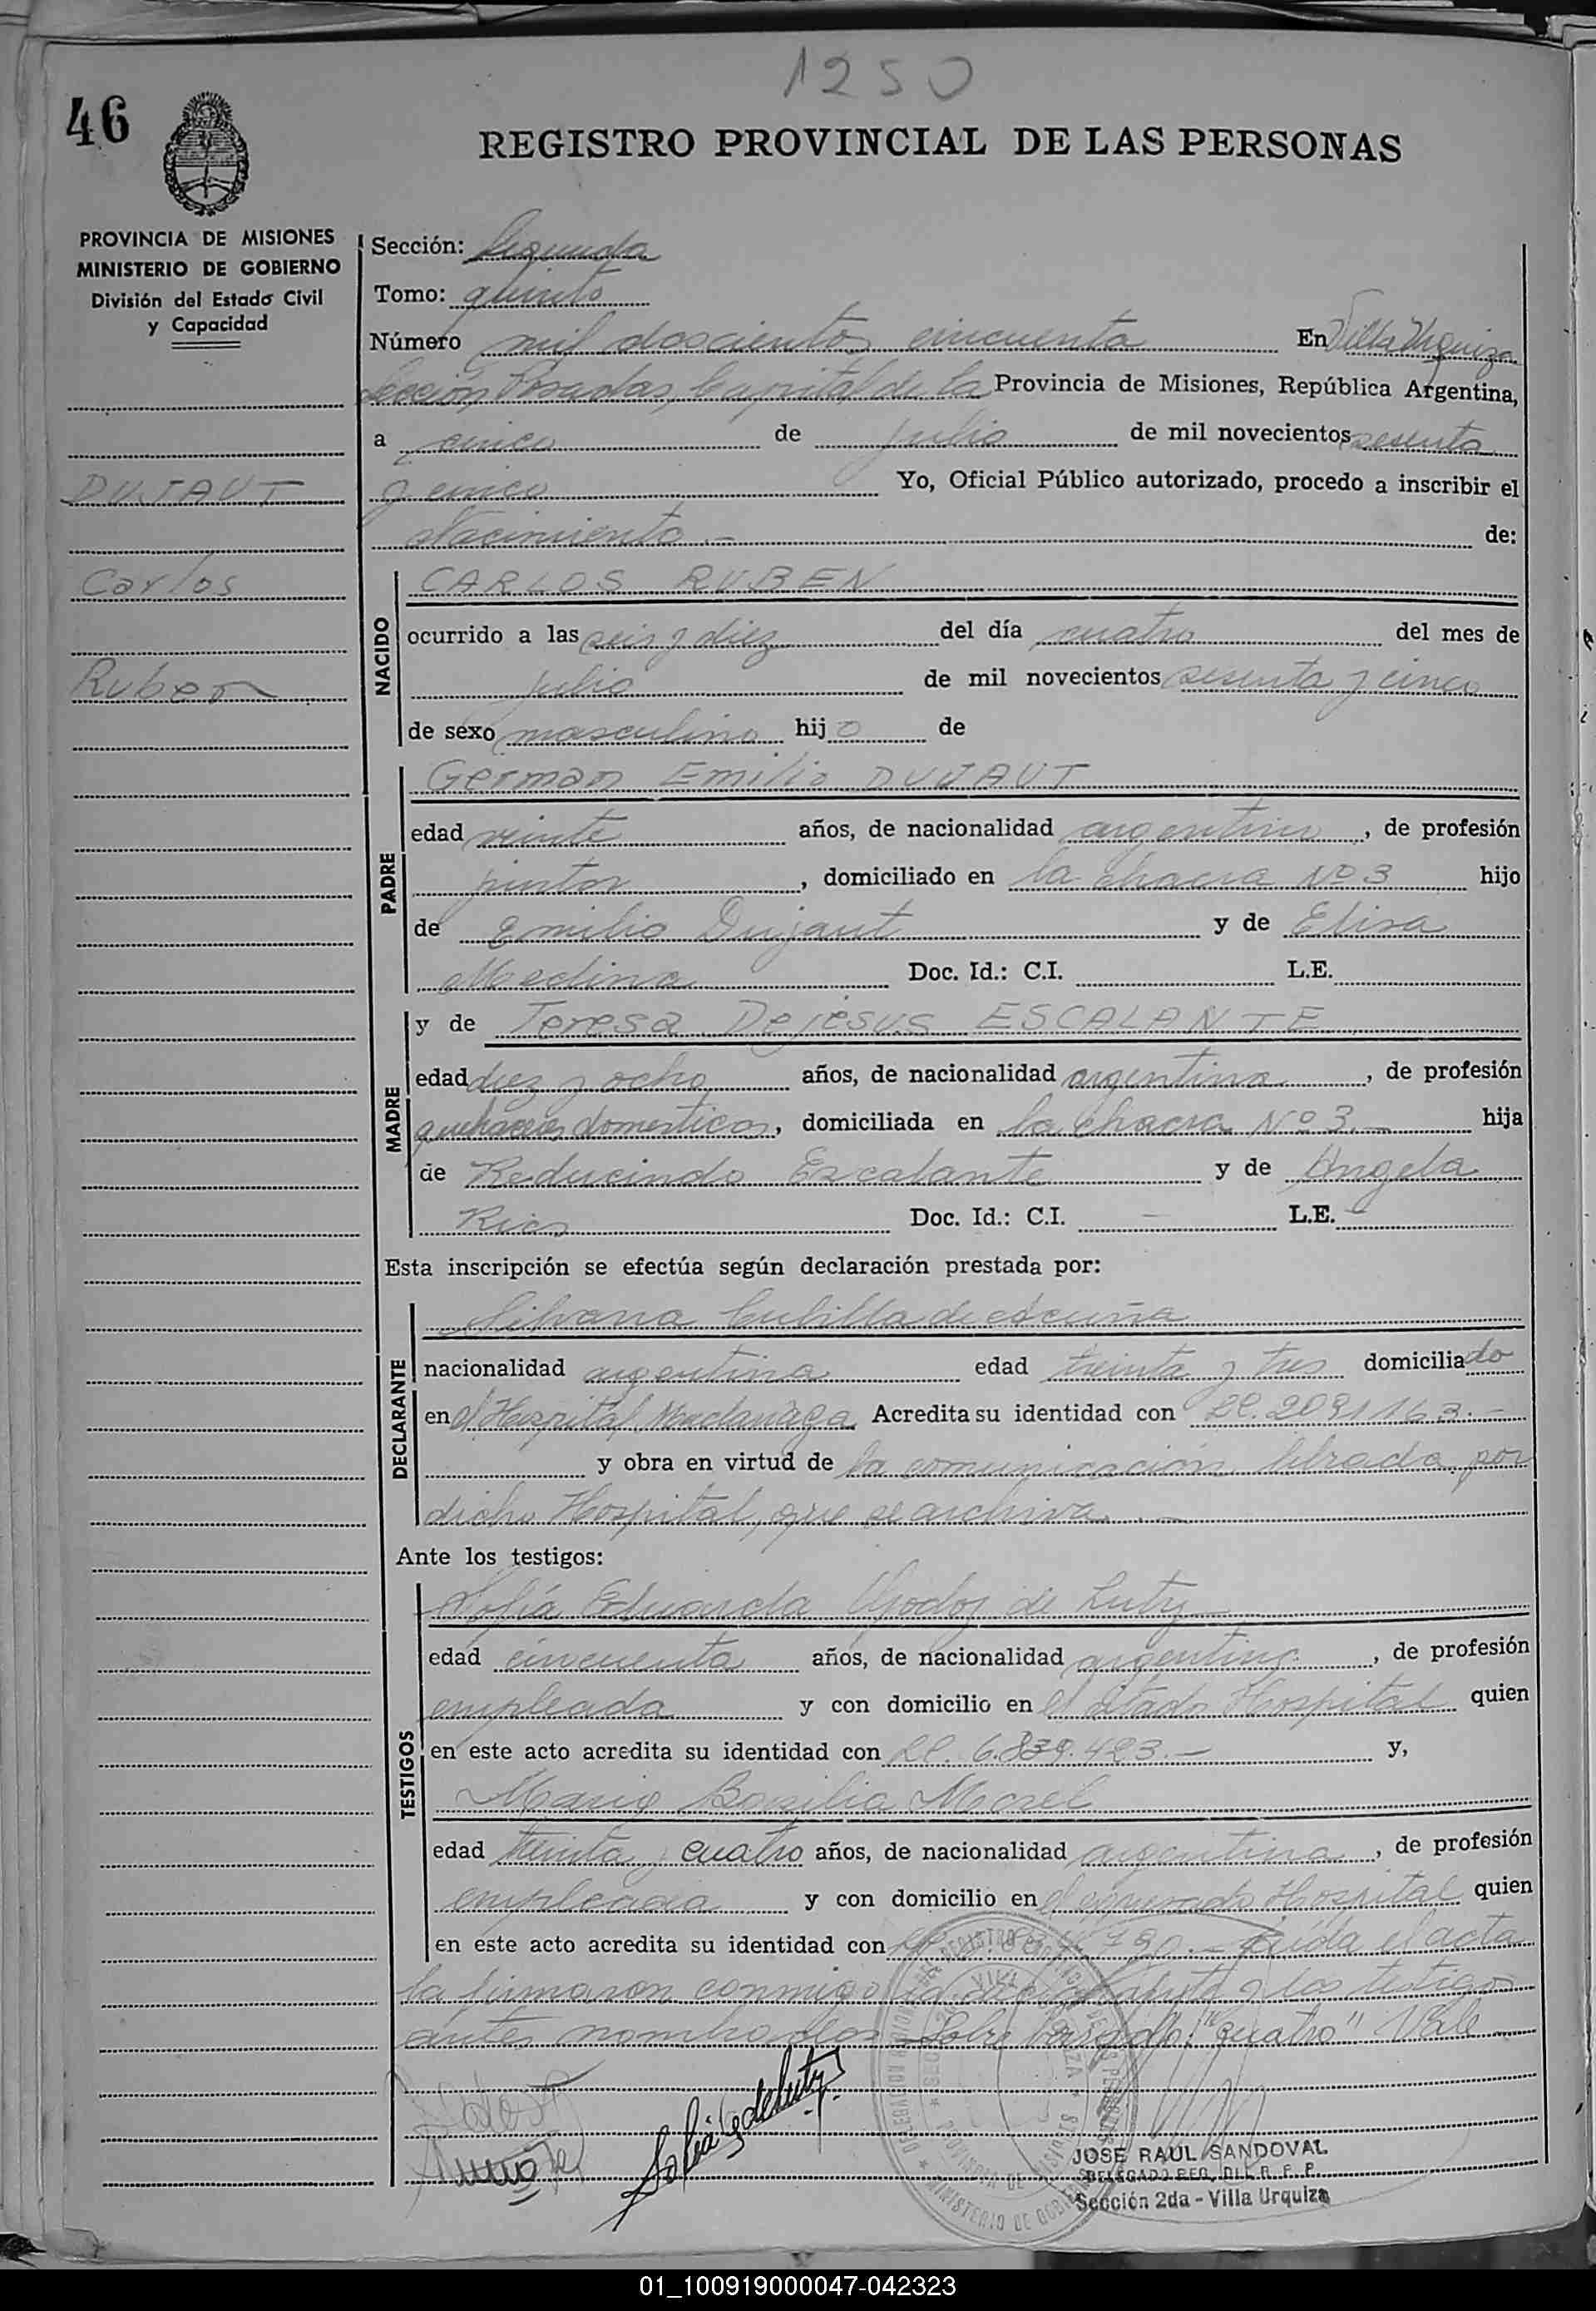 1250
46
REGISTRO PROVINCIAL DE LAS PERSONAS
PROVINCIA DE MISIONES
MINISTERIO DE GOBIERNO
División del Estado Civil
y Capacidad
DUJAUT
Carlos
Ruben
Sección: Segunda
Tomo: quinto
Número mil doscientos cincuenta En Villa Urquiza
Sección Posadas, Capital de la Provincia de Misiones, República Argentina,
a cinco de julio de mil novecientos sesenta
y cinco Yo, Oficial Público autorizado, procedo a inscribir el
Nacimiento.- de:
NACIDO
CARLOS RUBEN
ocurrido a las seis y diez del día cuatro del mes de
julio de mil novecientos sesenta y cinco
de sexo masculino hijo de
PADRE
German Emilio DUJAUT
edad veinte años, de nacionalidad argentino, de profesión
pintor, domiciliado en la chacra Nº 3 hijo
de Emilio Dujaut y de Elisa
Medina Doc. Id.: C.I. L.E.
MADRE
y de Teresa Dejesus ESCALANTE
edad diez y ocho años, de nacionalidad argentina, de profesión
quehaceres domesticos, domiciliada en la chacra Nº 3.- hija
de Reducindo Escalante y de Angela
Rios Doc. Id.: C.I. — L.E. —
Esta inscripción se efectúa según declaración prestada por:
DECLARANTE
Silvana Cubilla de Acuña
nacionalidad argentina edad treinta y tres domiciliado
en el Hospital Madariaga Acredita su identidad con LC. 2091163.-
y obra en virtud de la comunicación librada por
dicho Hospital, que se archiva.-
Ante los testigos:
TESTIGOS
Sofía Eduarda Godoy de Lutz
edad cincuenta años, de nacionalidad argentina, de profesión
empleada y con domicilio en el citado Hospital quien
en este acto acredita su identidad con LC. 6.839.423.- y,
María Basilia Morel
edad treinta y cuatro años, de nacionalidad argentina, de profesión
empleada y con domicilio en el expresado Hospital quien
en este acto acredita su identidad con Leída el acta
la firmaron conmigo la declarante y los testigos
antes nombrados. Sobre borrado: "cuatro" Vale
Sofía G de Lutz
JOSE RAUL SANDOVAL
DELEGADO REG. DEL R. P. P.
Sección 2da - Villa Urquiza
01_100919000047-042323